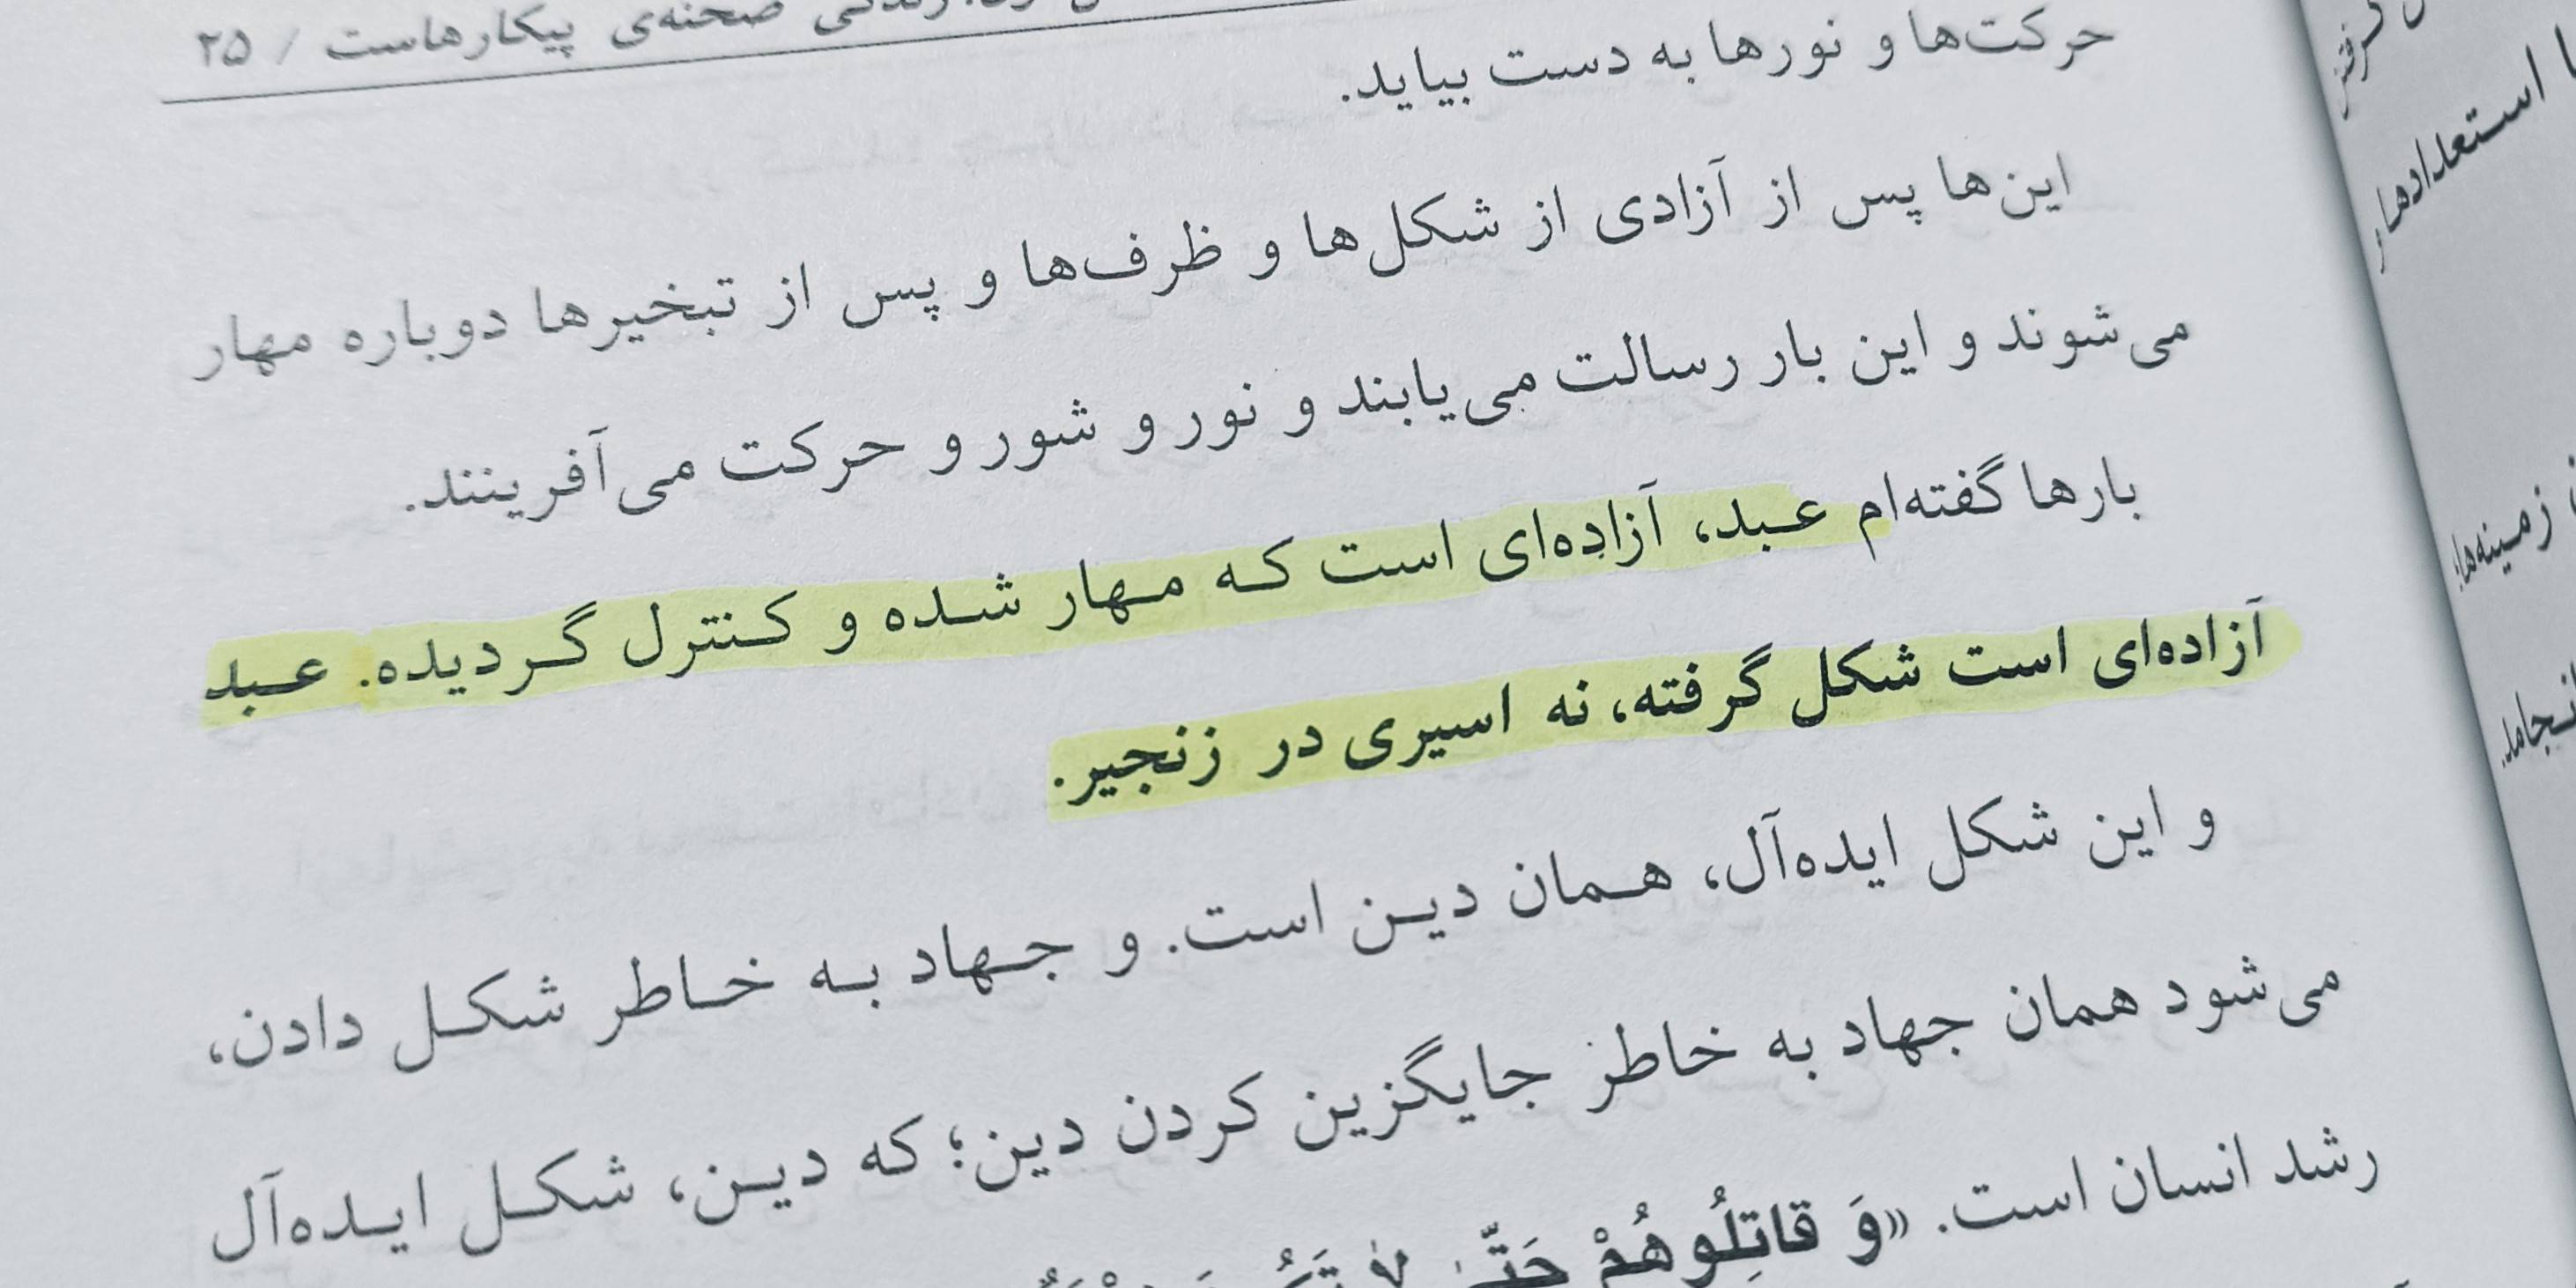 زندگی صحنه‌ی پیکارهاست / ۲۵
حرکت‌ها و نورها به دست بیاید.
این‌ها پس از آزادی از شکل‌ها و ظرف‌ها و پس از تبخیرها دوباره مهار
می‌شوند و این بار رسالت می‌یابند و نور و شور و حرکت می‌آفرینند.
بارها گفته‌ام عبد، آزاده‌ای است که مهار شده و کنترل گردیده. عبد
آزاده‌ای است شکل گرفته، نه اسیری در زنجیر.
و این شکل ایده‌آل، همان دین است. و جهاد به خاطر شکل دادن،
می‌شود همان جهاد به خاطر جایگزین کردن دین؛ که دین، شکل ایده‌آل
رشد انسان است. «وَ قاتِلُوهُمْ حَتّی لا
استعدادها
زمینه‌ها